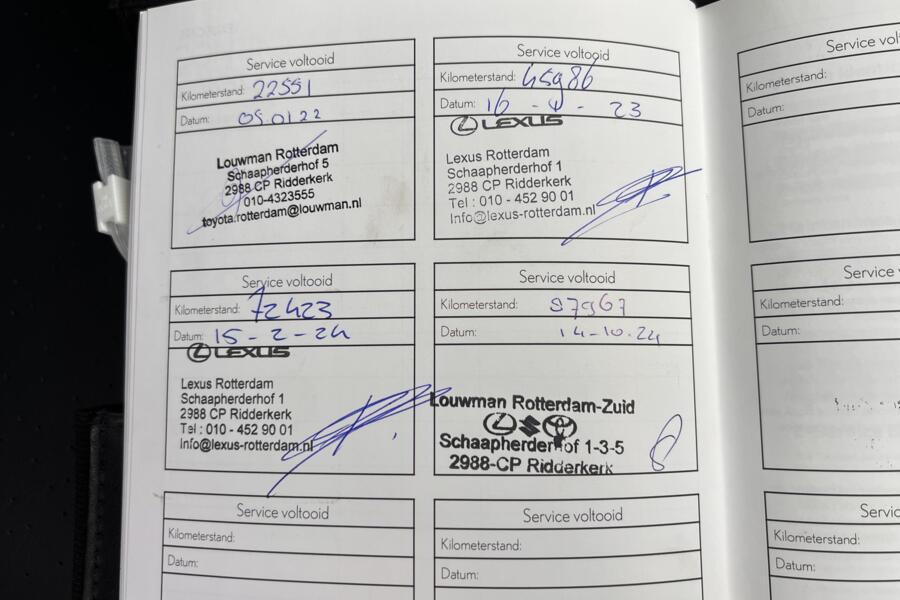 Service voltooid
Kilometerstand: 22551
Datum: 05.01.22
Louwman Rotterdam
Schaapherderhof 5
2988 CP Ridderkerk
010-4323555
toyota.rotterdam@louwman.nl
Service voltooid
Kilometerstand: 45986
Datum: 16 - 4 - 23
LEXUS
Lexus Rotterdam
Schaapherderhof 1
2988 CP Ridderkerk
Tel : 010 - 452 90 01
Info@lexus-rotterdam.nl
Service voltooid
Kilometerstand: 72423
Datum: 15 - 2 - 24
LEXUS
Lexus Rotterdam
Schaapherderhof 1
2988 CP Ridderkerk
Tel : 010 - 452 90 01
Info@lexus-rotterdam.nl
Service voltooid
Kilometerstand: 97967
Datum: 14-10.24
Louwman Rotterdam-Zuid
Schaapherderhof 1-3-5
2988-CP Ridderkerk
Service voltooid
Kilometerstand:
Datum:
Service voltooid
Kilometerstand:
Datum:
Service vol
Kilometerstand:
Datum:
Service
Kilometerstand:
Datum:
Servic
Kilometerstand:
Datum: